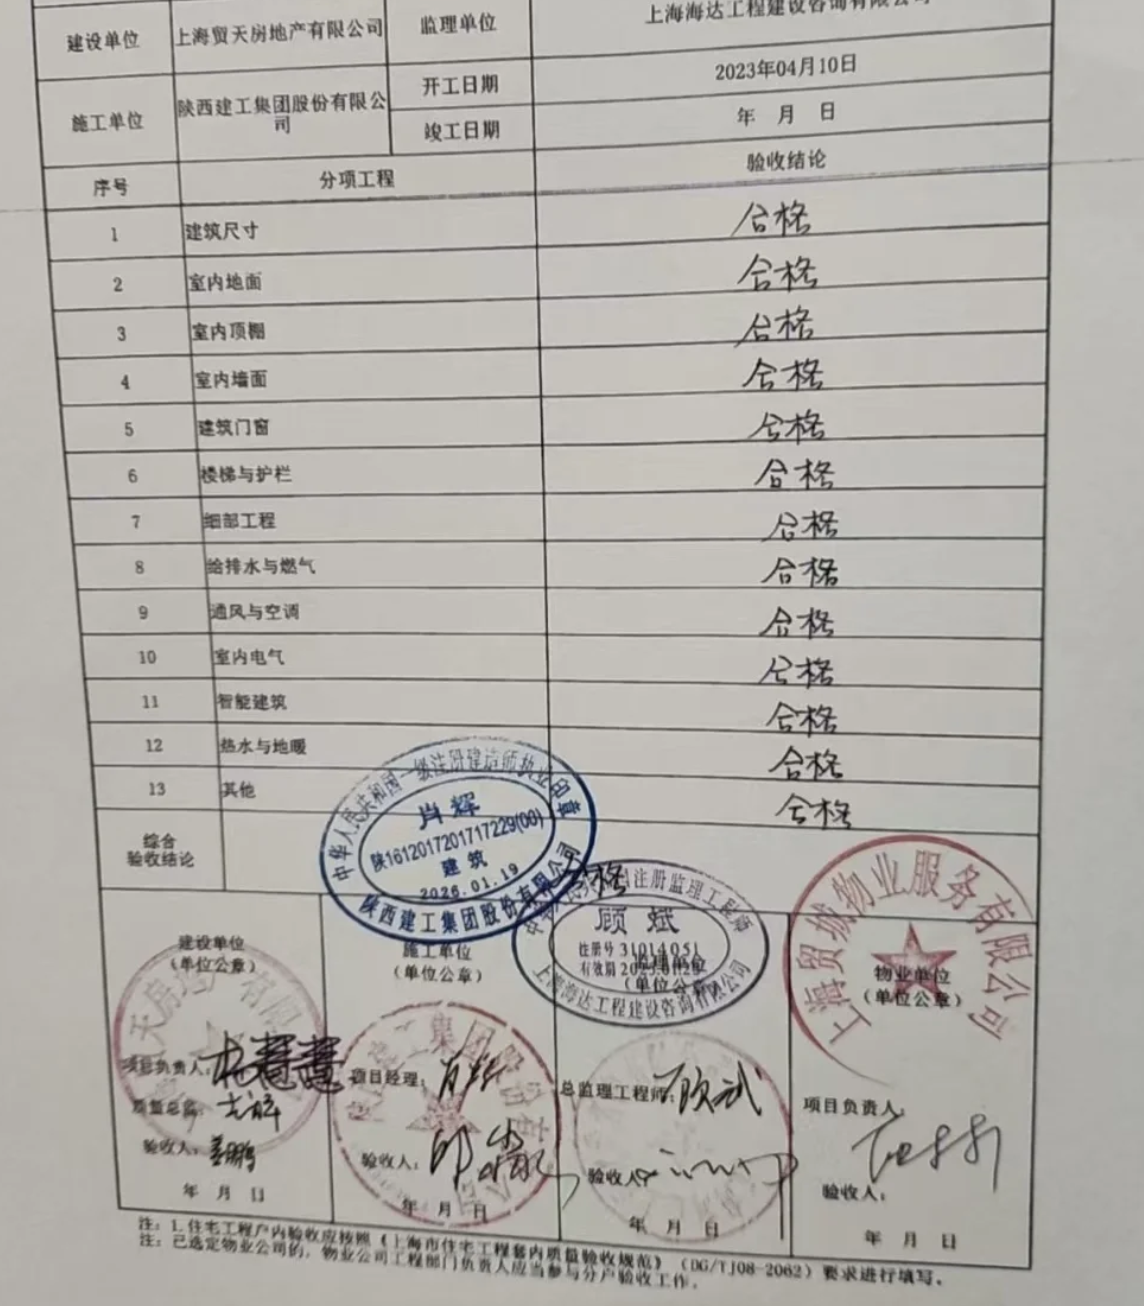 建设单位 上海贸天房地产有限公司 监理单位 上海海达工程建设咨询有限公司
施工单位 陕西建工集团股份有限公司 开工日期 2023年04月10日
竣工日期 年 月 日
序号 分项工程 验收结论
1 建筑尺寸 合格
2 室内地面 合格
3 室内顶棚 合格
4 室内墙面 合格
5 建筑门窗 合格
6 楼梯与护栏 合格
7 细部工程 合格
8 给排水与燃气 合格
9 通风与空调 合格
10 室内电气 合格
11 智能建筑 合格
12 热水与地暖 合格
13 其他 合格
综合
验收结论 合格
中华人民共和国一级注册建造师执业印章
肖辉
陕1612017201717229(00)
建筑
2026.01.19
陕西建工集团股份有限公司
注册监理工程师
顾斌
注册号 31014051
有效期
上海海达工程建设咨询有限公司
上海贸城物业服务有限公司
建设单位
(单位公章)
施工单位
(单位公章)
监理单位
(单位公章)
物业单位
(单位公章)
项目负责人:
质量总监:
验收人:
年 月 日
项目经理: 肖辉
验收人:
年 月 日
总监理工程师: 顾斌
验收人:
年 月 日
项目负责人:
验收人:
年 月 日
注: 1.住宅工程户内验收应按照《上海市住宅工程套内质量验收规范》(DG/TJ08-2062)要求进行填写。
注: 已选定物业公司的, 物业公司工程部门负责人应当参与分户验收工作。